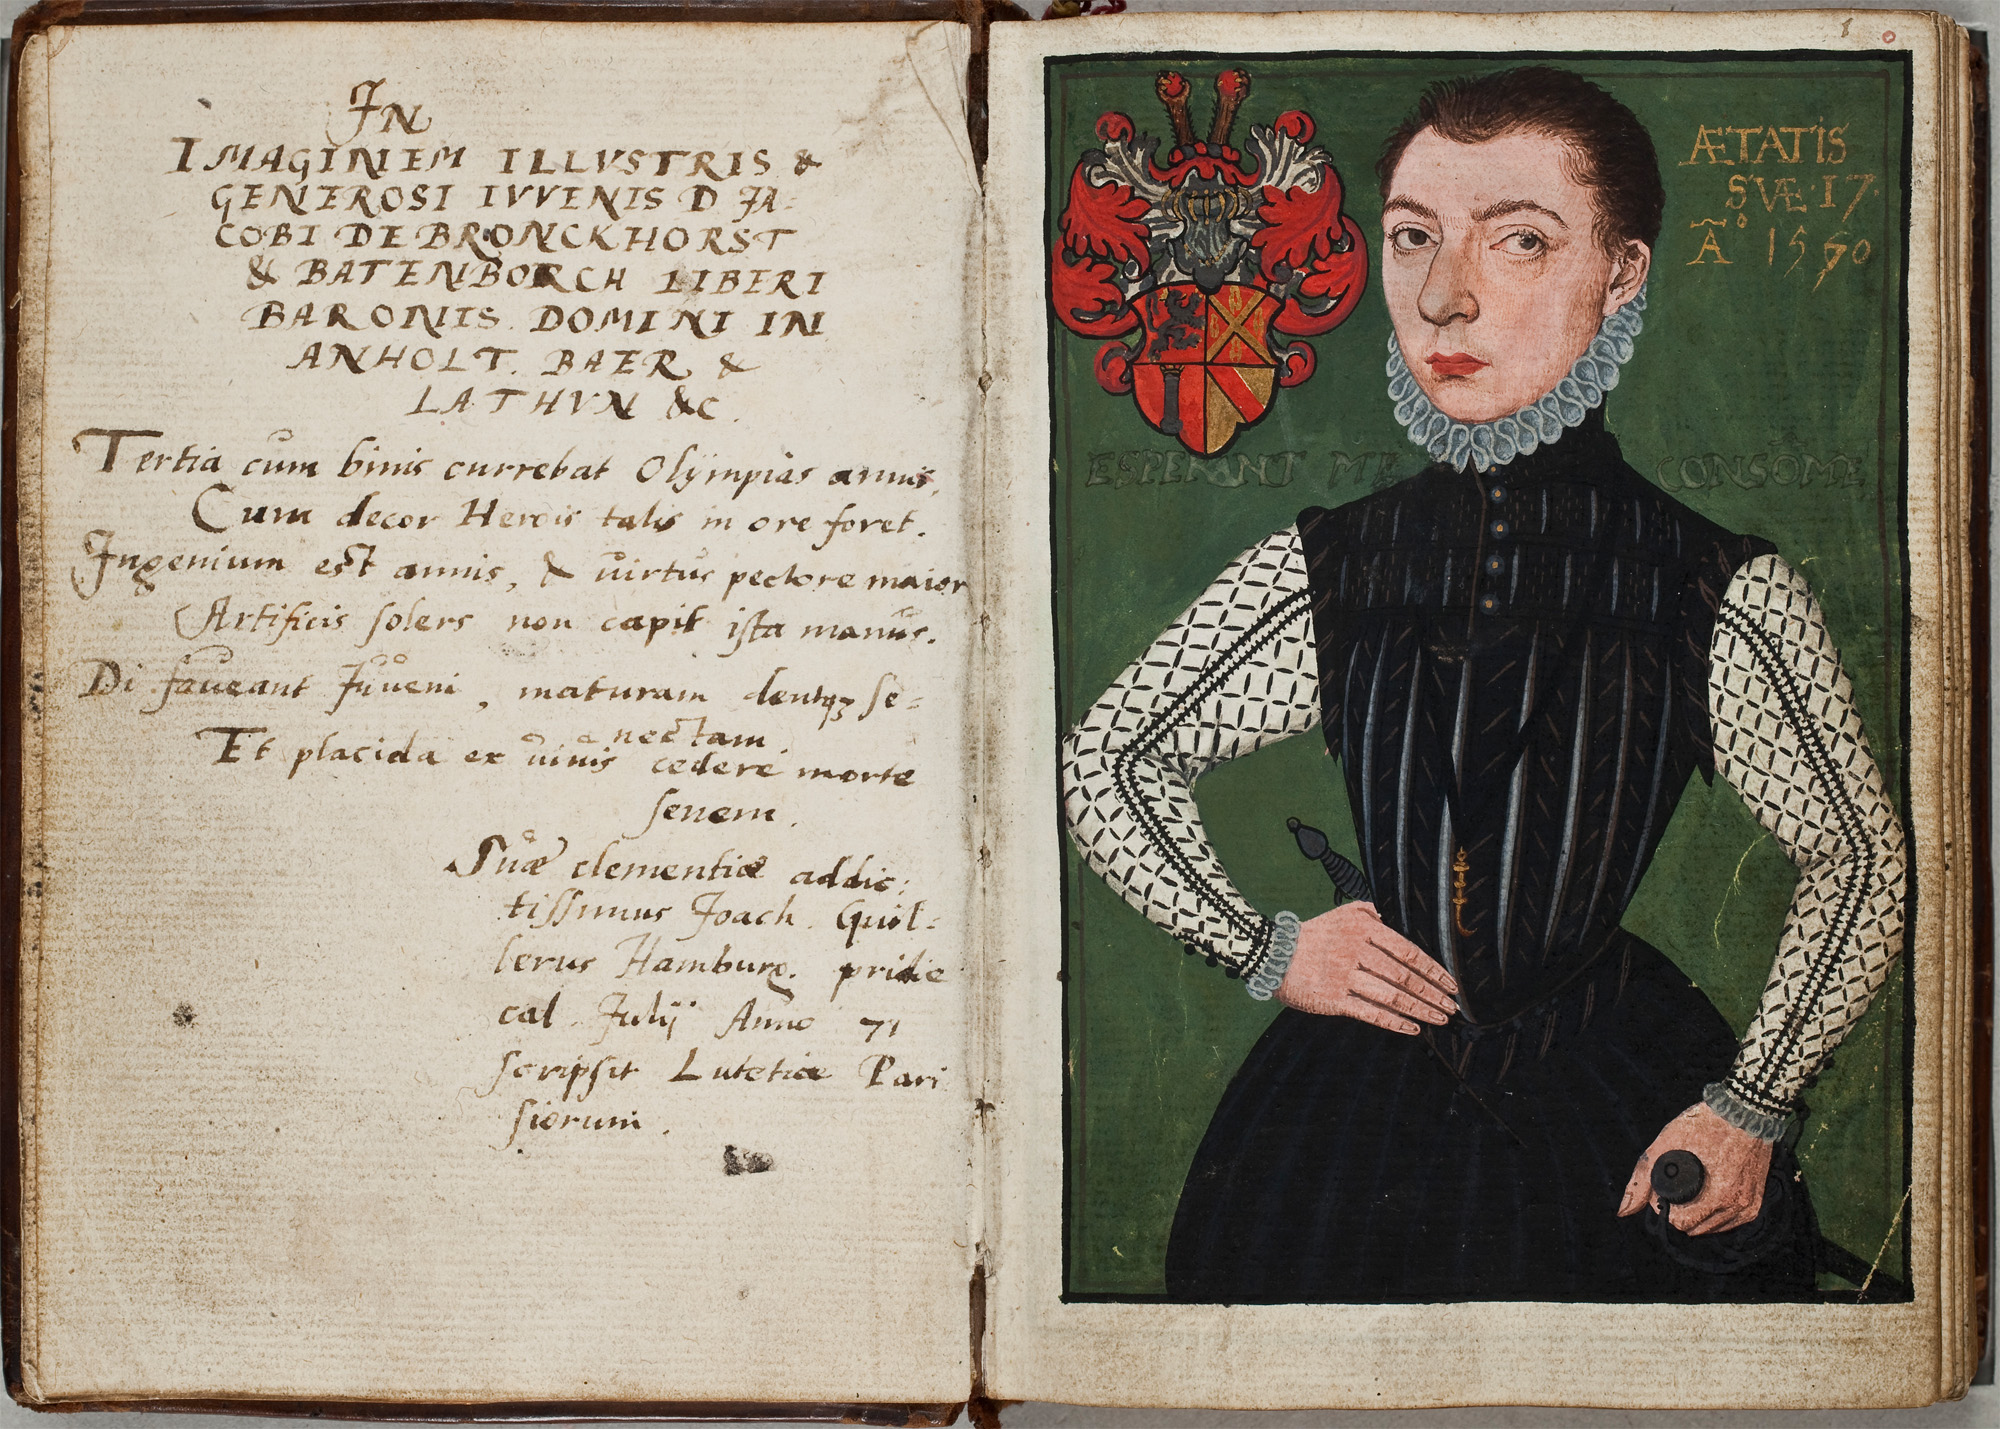 IN
IMAGINEM ILLVSTRIS &
GENEROSI IVVENIS D JA-
COBI DE BRONCKHORST
& BATENBORCH LIBERI
BARONIIS DOMINI IN
ANHOLT. BAER &
LATHVN &C.
Tertia cum binis currebat Olÿmpias annis,
Cum decor Herois talis in ore foret.
Ingenium est annis, & uirtus pectore maior
Artificis solers non capit ista manus.
Di faueant Juueni, maturam dentqꝫ se=
nectam.
Et placida ex uiuis cedere morte
senem.
Suæ clementiæ addic:
tissimus Joach. Quil=
lerus Hamburg. pridie
cal. Julij Anno 71
scripsit Lutetiæ Pari
siorum.
8
ÆTATIS
SVÆ·17·
Aº 1570
ESPERANT ME CONSÕME